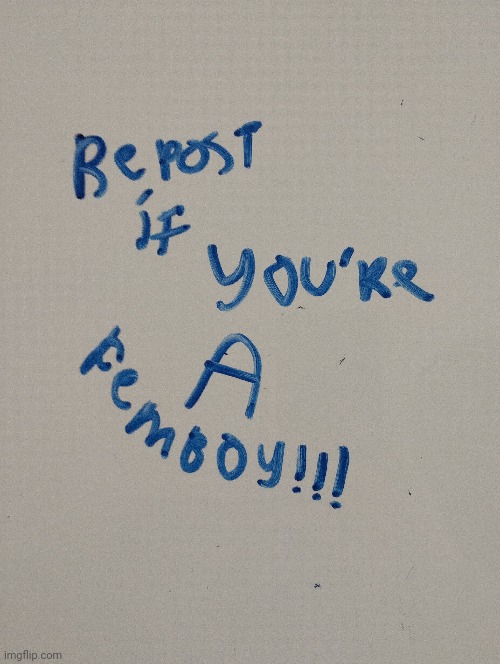 Repost
if
YOU'Re
A
FemBOY!!!
imgflip.com